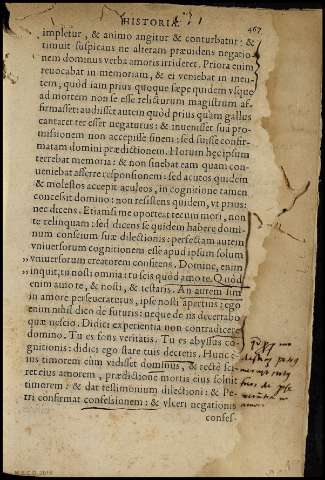 HISTORIÆ
467
impletur, & animo angitur & conturbatur: &
timuit suspicans ne alteram præuidens negatio-
nem dominus verba amoris irrideret. Priora enim
reuocabat in memoriam, & ei veniebat in men-
tem, quòd iam prius quoque sæpe quidem vsque
ad mortem non se esse relicturum magistrum af-
firmasset: audisset autem quòd prius quàm gallus
cantaret ter esset negaturus: & inuenisset sua pro-
missionem non accepisse finem: sed fuisse confir-
matam domini prædictionem. Horum hęc ipsum
terrebat memoria: & non sinebat eam quam con-
ueniebat afferre responsionem: sed acutos quidem
& molestos accepit aculeos, in cognitione tamen
concessit domino: non resistens quidem, vt prius:
nec dicens. Etiamsi me oporteat tecum mori, non
te relinquam: sed dicens se quidem habere domi-
num conscium suæ dilectionis: perfectam autem
vniuersorum cognitionem esse apud ipsum solum
vniuersorum creatorem confitens. Domine, enim
inquit, tu nosti omnia: tu scis quòd amo te. Quòd
enim amo te, & nosti, & testaris. An autem sim
in amore perseueraturus, ipse nosti apertius: ego
enim nihil dico de futuris: neque de iis decertabo
quæ nescio. Didici experientia non contradicere
domino. Tu es fons veritatis. Tu es abyssus co-
gnitionis: didici ego stare tuis decretis. Hunc e-
ius timorem cùm vidisset dominus, & rectè sci-
ret eius amorem, prædictione mortis eius soluit
timorem: & dat testimonium dilectioni: & Pe-
tri confirmat confessionem: & vlceri negationis
confes-